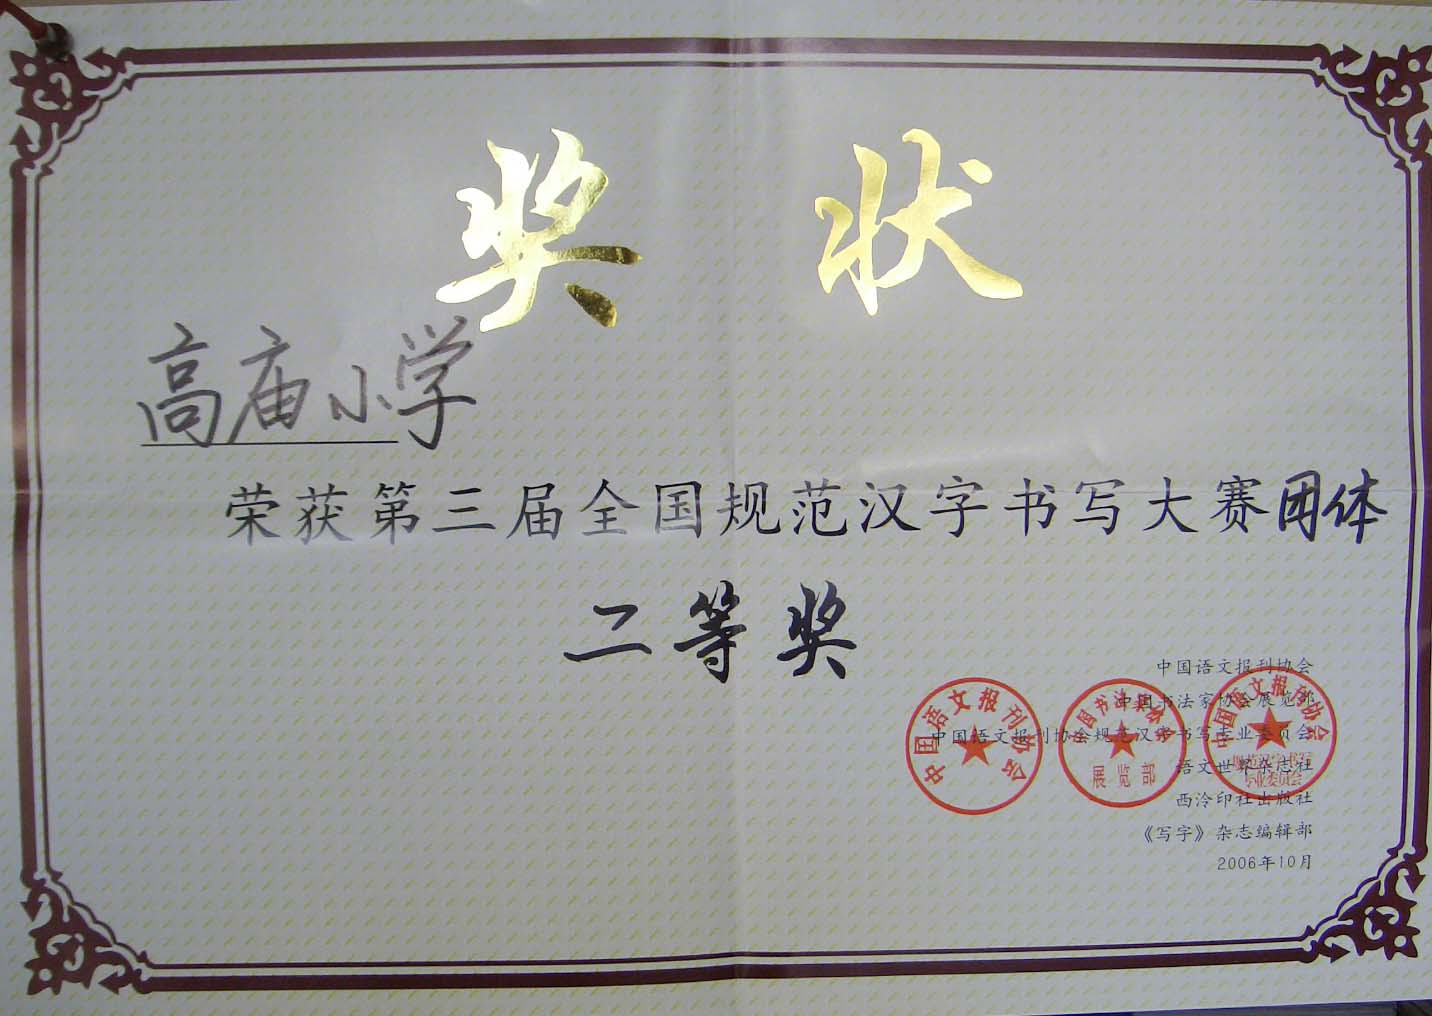 奖状
高庙小学
荣获第三届全国规范汉字书写大赛团体
二等奖
中国语文报刊协会
中国书法家协会展览部
中国语文报刊协会规范汉字书写专业委员会
语文世界杂志社
西泠印社出版社
《写字》杂志编辑部
2006年10月
中国语文报刊协会
中国书法家协会
展览部
中国语文报刊协会
规范汉字书写
专业委员会